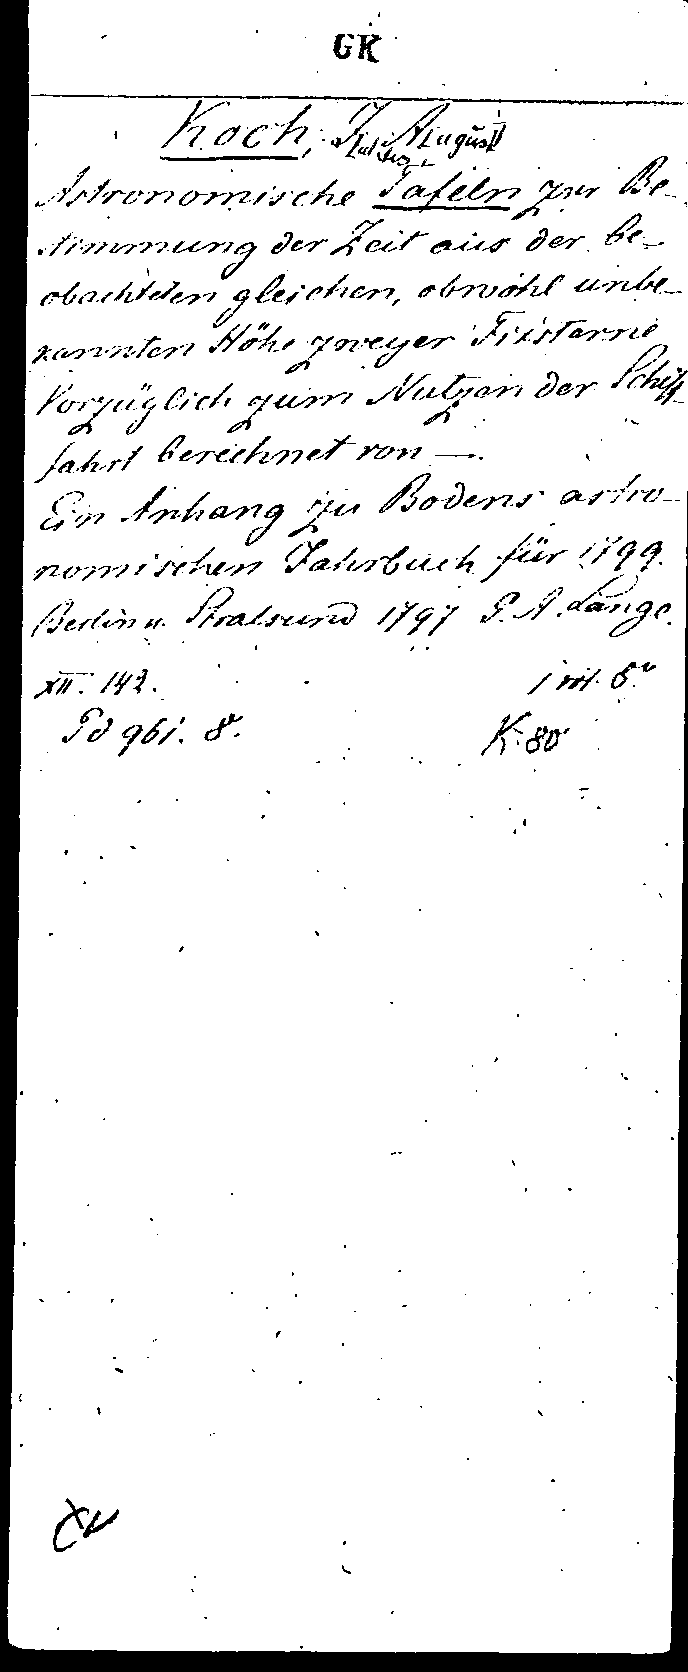 GK
Koch, J. August
Astronomische Tafeln zur Be-
stimmung der Zeit aus der be-
obachteten gleichen, obwohl unbe-
kannten Höhe zweyer Fixsterne
Vorzüglich zum Nutzen der Schiff-
fahrt berechnet von —.
Ein Anhang zu Bodens astro-
nomischen Jahrbuch für 1799.
Berlin u. Stralsund 1797 G. A. Lange.
XII. 142. 1 vol. 8º
Pd 961. 8º. K. 80